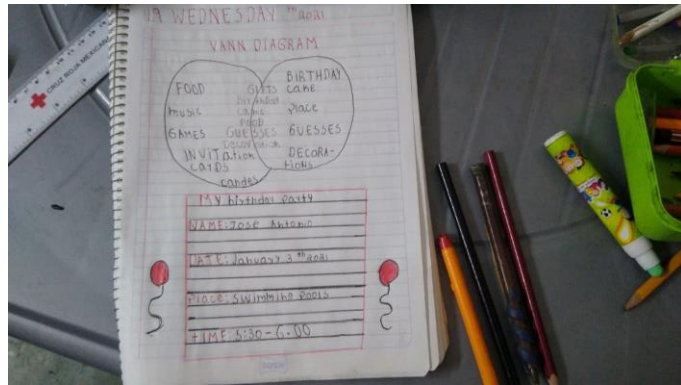 19 WEDNESDAY th 2021
VANN DIAGRAM
FOOD
music
GAMES
INVITATION
CARDS
candes
GIFTS
birthday
cake
FOOD
GUESSES
Decoration
BIRTHDAY
cake
place
GUESSES
DECORA-
TIONS
MY birthday party
NAME: Jose Antonio
DATE: January 3 th 2021
Place: swimming pools
TIME 5:30 - 6:00
CRUZ ROJA MEXICANA